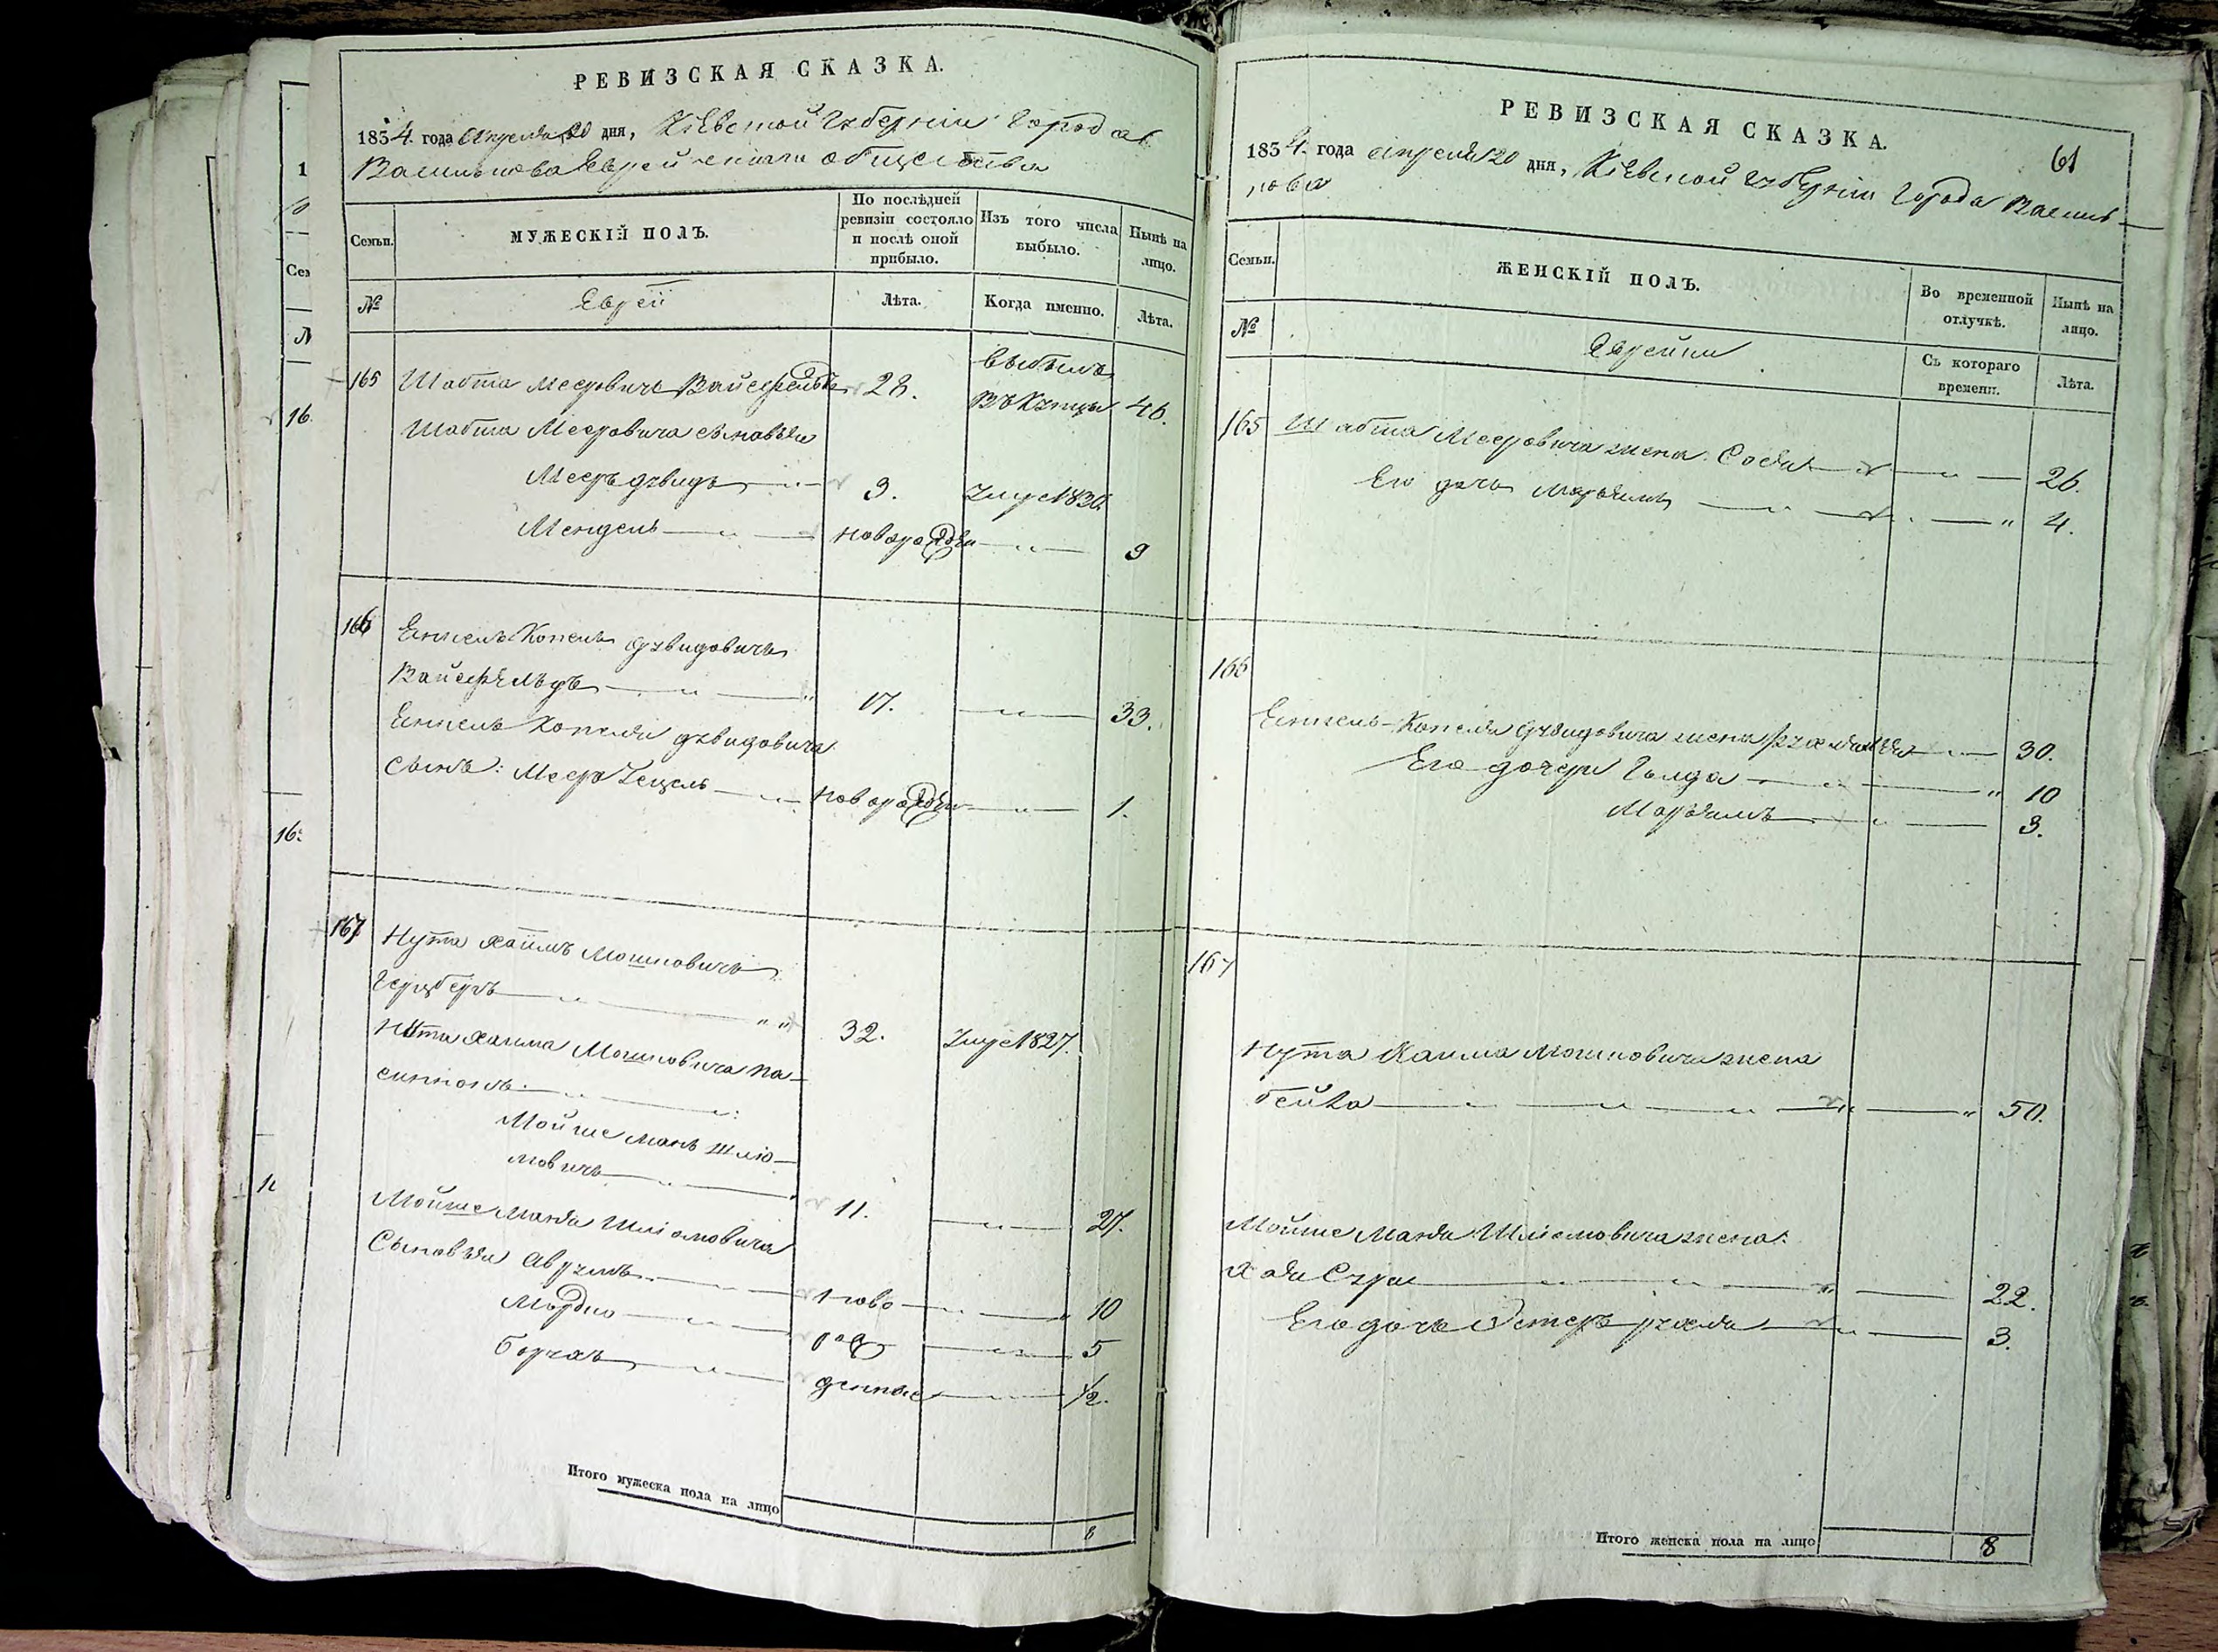 РЕВИЗСКАЯ СКАЗКА.
1854. года Апреля 20 дня, Кіевской Губерніи Города
Василькова Еврейскаго общества
Семьи. МУЖЕСКІЙ ПОЛЪ. По послѣдней ревизіи состояло и послѣ оной прибыло. Изъ того числа выбыло. Нынѣ на лицо.
№ Евреи Лѣта. Когда именно. Лѣта.
165 Шабта Меерович Вайсфельдъ 28. выбылъ въ Купцы 46.
Шабта Мееровича сыновья
Мееръ дувидъ 3. Умре 1836
Мендель новорожден 9
166 Копель дувидовичъ
Вайсфельдъ 17. 33.
Копеля дувидовича
сынъ: Меер новорожден 1.
167 Нута Хаимъ Мошковичъ
Герцберъ 32. Умре 1827.
Нута Хаима Мошковича па-
синокъ:
Мойше Манъ Шлiо-
мовичъ 11. 27.
Мойше Маня Шліомовича
Сыновья Аврумъ ново 10
Мордко рож 5
Борухъ денные 1/2.
Итого мужеска пола на лицо 8
РЕВИЗСКАЯ СКАЗКА.
61
1854. года апреля 20 дня, Кіевской Губерніи Города Василь-
кова
Семьи. ЖЕНСКІЙ ПОЛЪ. Во временной отлучкѣ. Нынѣ на лицо.
№ Еврейки Съ котораго времени. Лѣта.
165 Шабта Мееровича жена Сося 26.
Его дочь Марьямъ 4.
166
Копеля Дувидовича жена 30.
Его дочери Голда 10
Марьямъ 3.
167
Нута Хаима Мошковича жена
Бейла 50.
Мойше Маня Шліомовича жена:
Хая Сура 22.
Его дочь Эстеръ рухля 3.
Итого женска пола на лицо 8
16.